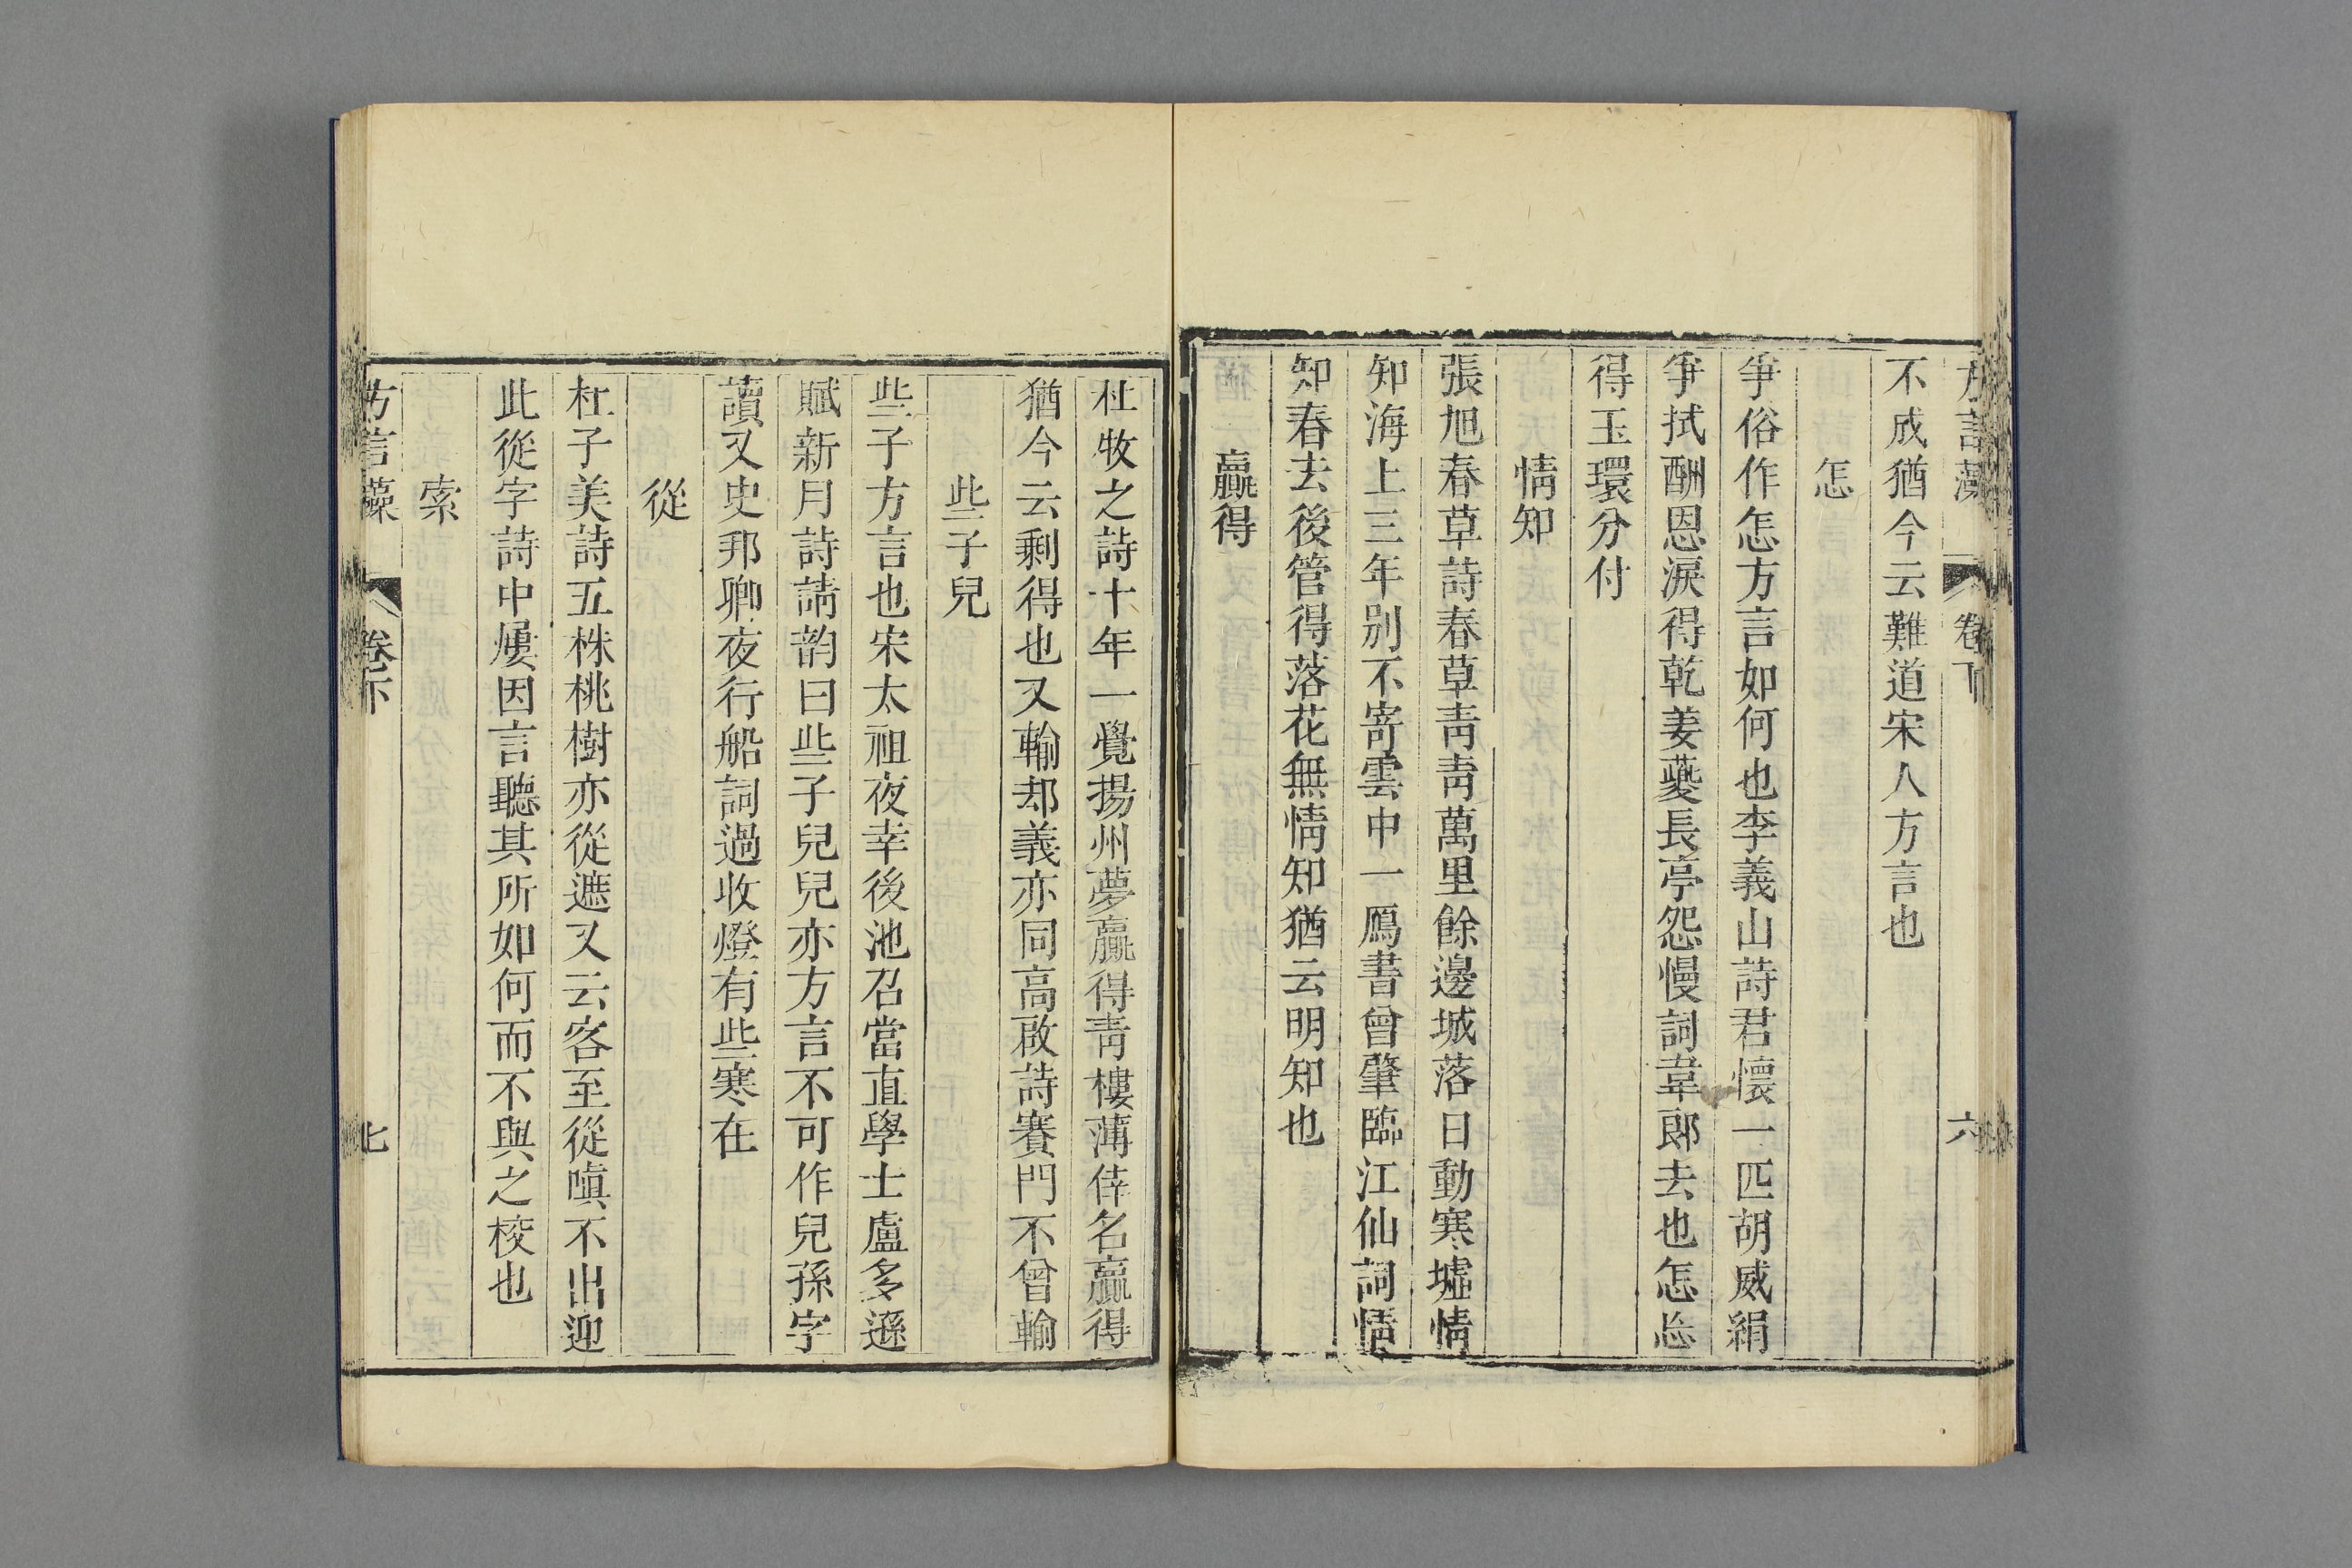 方言藻 卷下 六
不成猶今云難道宋人方言也
怎
爭俗作怎方言如何也李義山詩君懷一匹胡威絹
爭拭酬恩淚得乾姜夔長亭怨慢詞韋郎去也怎忘
得玉環分付
情知
張旭春草詩春草靑靑萬里餘邊城落日動寒墟情
知海上三年别不寄雲中一鴈書曾肇臨江仙詞情
知春去後管得落花無情知猶云明知也
贏得
杜牧之詩十年一覺揚州夢贏得靑樓薄倖名贏得
猶今云剩得也又輸却義亦同高啟詩賽門不曾輸
些子兒
些子方言也宋太祖夜幸後池召當直學士盧多遜
賦新月詩請韵曰些子兒兒亦方言不可作兒孫字
讀又史邦卿夜行船詞過收燈有些寒在
從
杜子美詩五株桃樹亦從遮又云客至從嗔不出迎
此從字詩中屢因言聽其所如何而不與之校也
索
方言藻 卷下 七